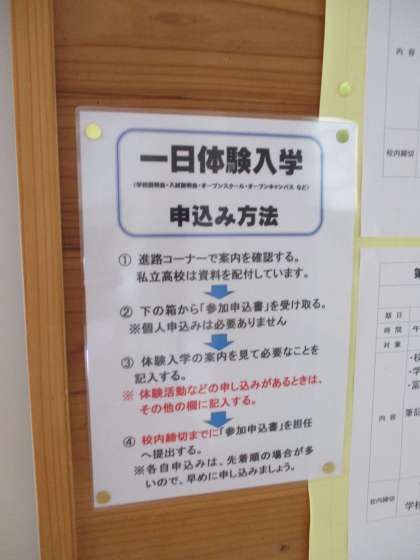 一日体験入学
(学校説明会・入試説明会・オープンスクール・オープンキャンパス など)
申込み方法
① 進路コーナーで案内を確認する。
私立高校は資料を配付しています。
② 下の箱から「参加申込書」を受け取る。
※個人申込みは必要ありません
③ 体験入学の案内を見て必要なことを
記入する。
※ 体験活動などの申し込みがあるときは、
その他の欄に記入する。
④ 校内締切までに「参加申込書」を担任
へ提出する。
※各自申込みは、先着順の場合が多
いので、早めに申し込みましょう。
内 容
校内締切
期 日
時 間
対 象
内 容
校内締切